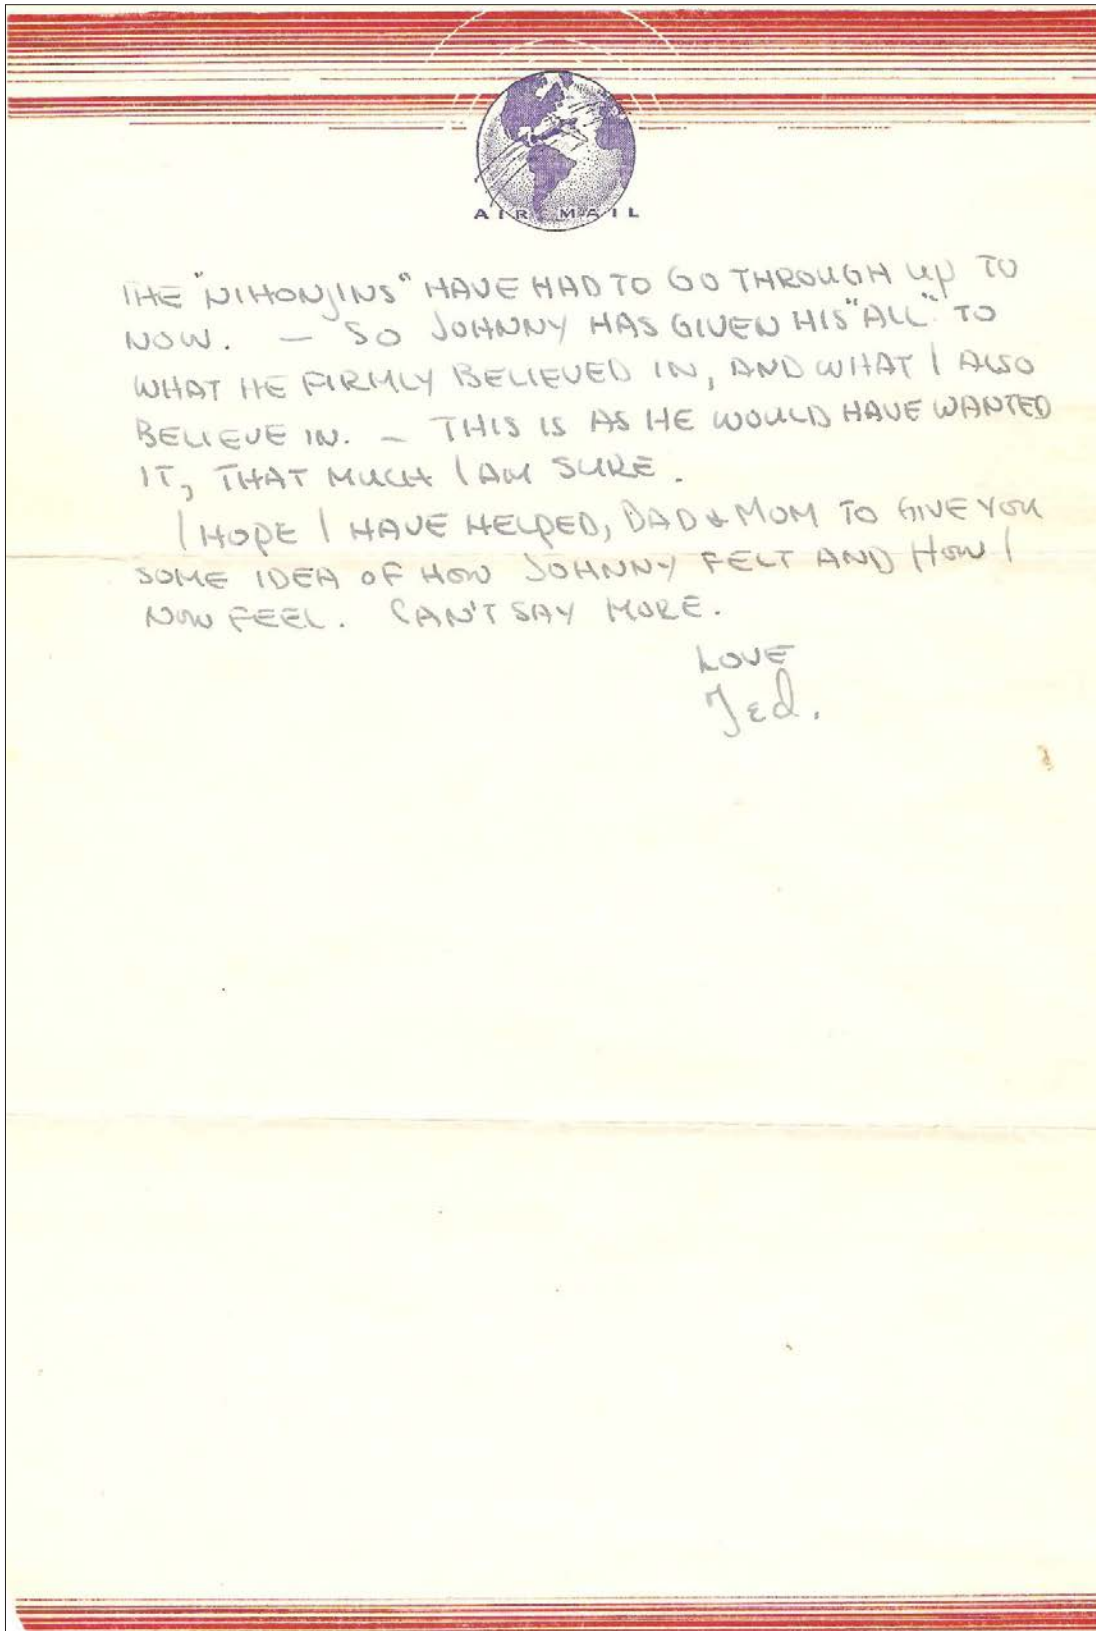 AIR MAIL
THE "NIHONJINS" HAVE HAD TO GO THROUGH UP TO
NOW. — SO JOHNNY HAS GIVEN HIS "ALL" TO
WHAT HE FIRMLY BELIEVED IN, AND WHAT I ALSO
BELIEVE IN. — THIS IS AS HE WOULD HAVE WANTED
IT, THAT MUCH I AM SURE.
I HOPE I HAVE HELPED, DAD & MOM TO GIVE YOU
SOME IDEA OF HOW JOHNNY FELT AND HOW I
NOW FEEL. CAN'T SAY MORE.
LOVE
Ted.